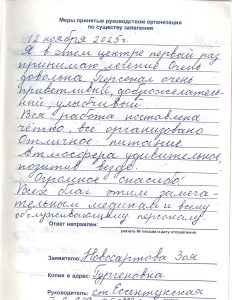 Меры принятые руководством организации
по существу заявления
12 ноября 2025г.
Я в этом центре первый раз
принимаю лечение очень
довольна. Персонал очень
приветливый, доброжелатель-
ний, улыбчивый.
Вся работа поставлена
чётко, все организовано
Отличное питание.
Атмосфера удивительное,
позитив везде.
Огромное спасибо!
Всех благ этим замеча-
тельным медикам и всему
обслуживающему персоналу.
Ответ направлен:
указать № письма и дату отправления
Заявитель: Новосартова Зоя
Копия в адрес: Гургеновна
Руководитель: ст. Ессентукская